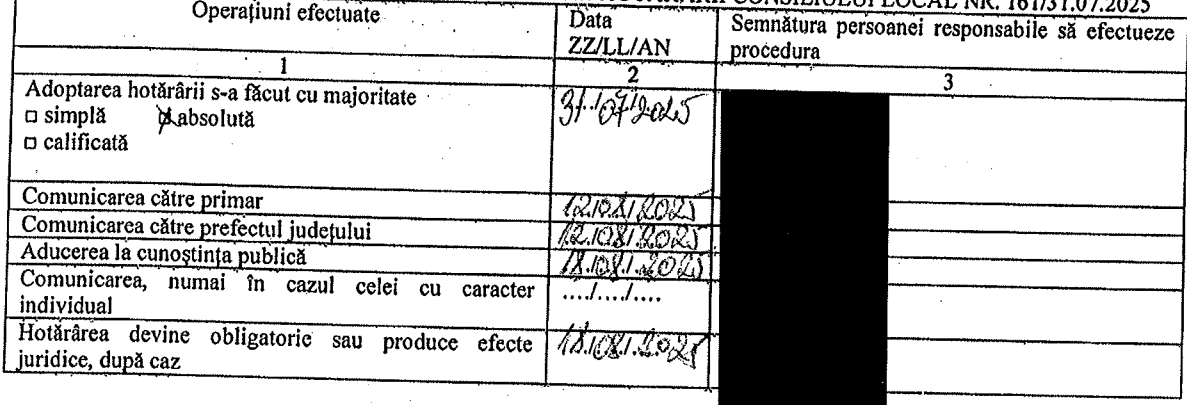 CONSILIULUI LOCAL NR. 161/31.07.2025
Operațiuni efectuate
Data
ZZ/LL/AN
Semnătura persoanei responsabile să efectueze
procedura
1
2
3
Adoptarea hotărârii s-a făcut cu majoritate
□ simplă □ absolută
□ calificată
31/07/2025
Comunicarea către primar
12/08/2025
Comunicarea către prefectul județului
12/08/2025
Aducerea la cunoștința publică
18/08/2025
Comunicarea, numai în cazul celei cu caracter
individual
..../..../....
Hotărârea devine obligatorie sau produce efecte
juridice, după caz
18/08/2025